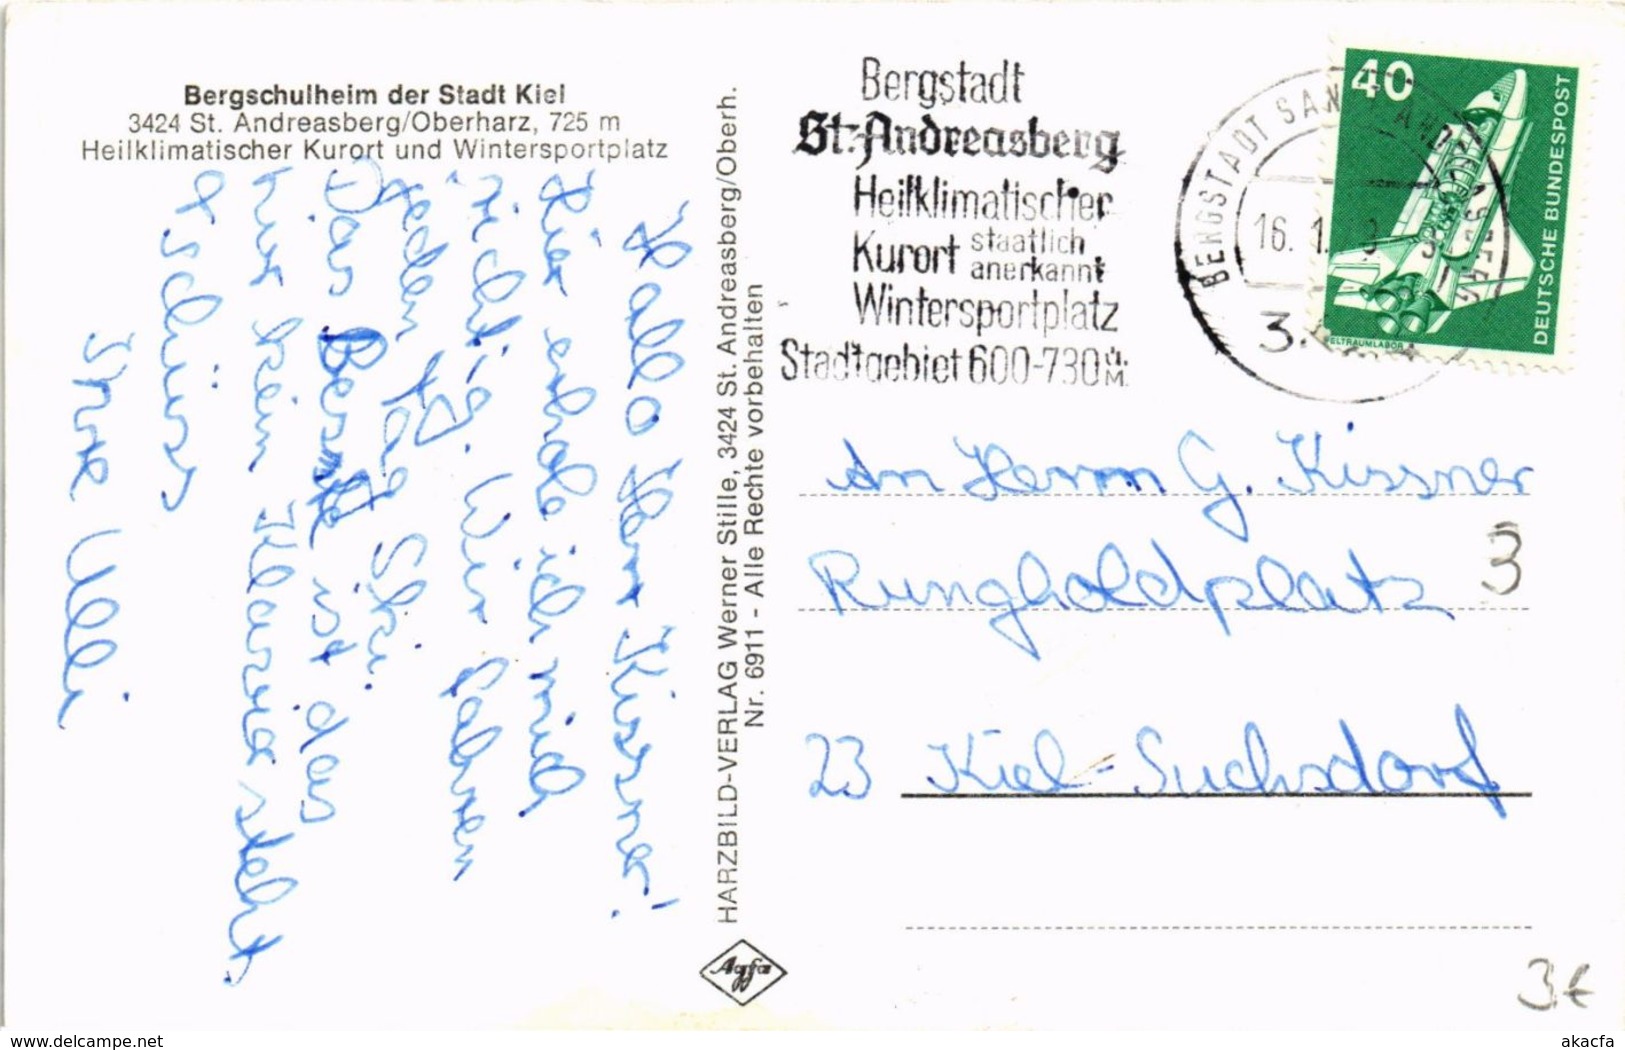 Bergschulheim der Stadt Kiel
3424 St. Andreasberg/Oberharz, 725 m
Heilklimatischer Kurort und Wintersportplatz
Hallo Herr Kissner!
Hier erhole ich mich
richtig. Wir fahren
jeden Tag Ski
Das Beste ist das
hier kein Klavier steht
Tschüss
Ihre Ulli
HARZBILD-VERLAG Werner Stille, 3424 St. Andreasberg/Oberh.
Nr. 6911 - Alle Rechte vorbehalten
Agfa
Bergstadt
St. Andreasberg
Heilklimatischer
Kurort staatlich anerkannt
Wintersportplatz
Stadtgebiet 600-730 ü. M.
BERGSTADT SANKT ANDREASBERG
16. 1.
3
40
DEUTSCHE BUNDESPOST
WELTRAUMLABOR
An Herrn G. Kissner
Rungholdplatz 3
23 Kiel-Suchsdorf
3€
delcampe.net
akacfa